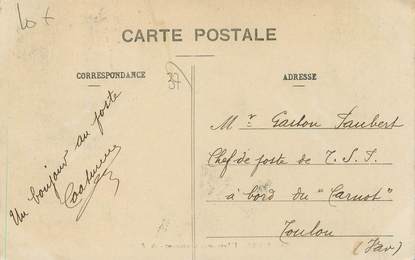 Lot
CARTE POSTALE
CORRESPONDANCE
37
ADRESSE
Un bonjour au poste
Mr Gaston Faubert
Chef de poste de T.S.F.
à bord du "Carnot"
Toulon
(Var)